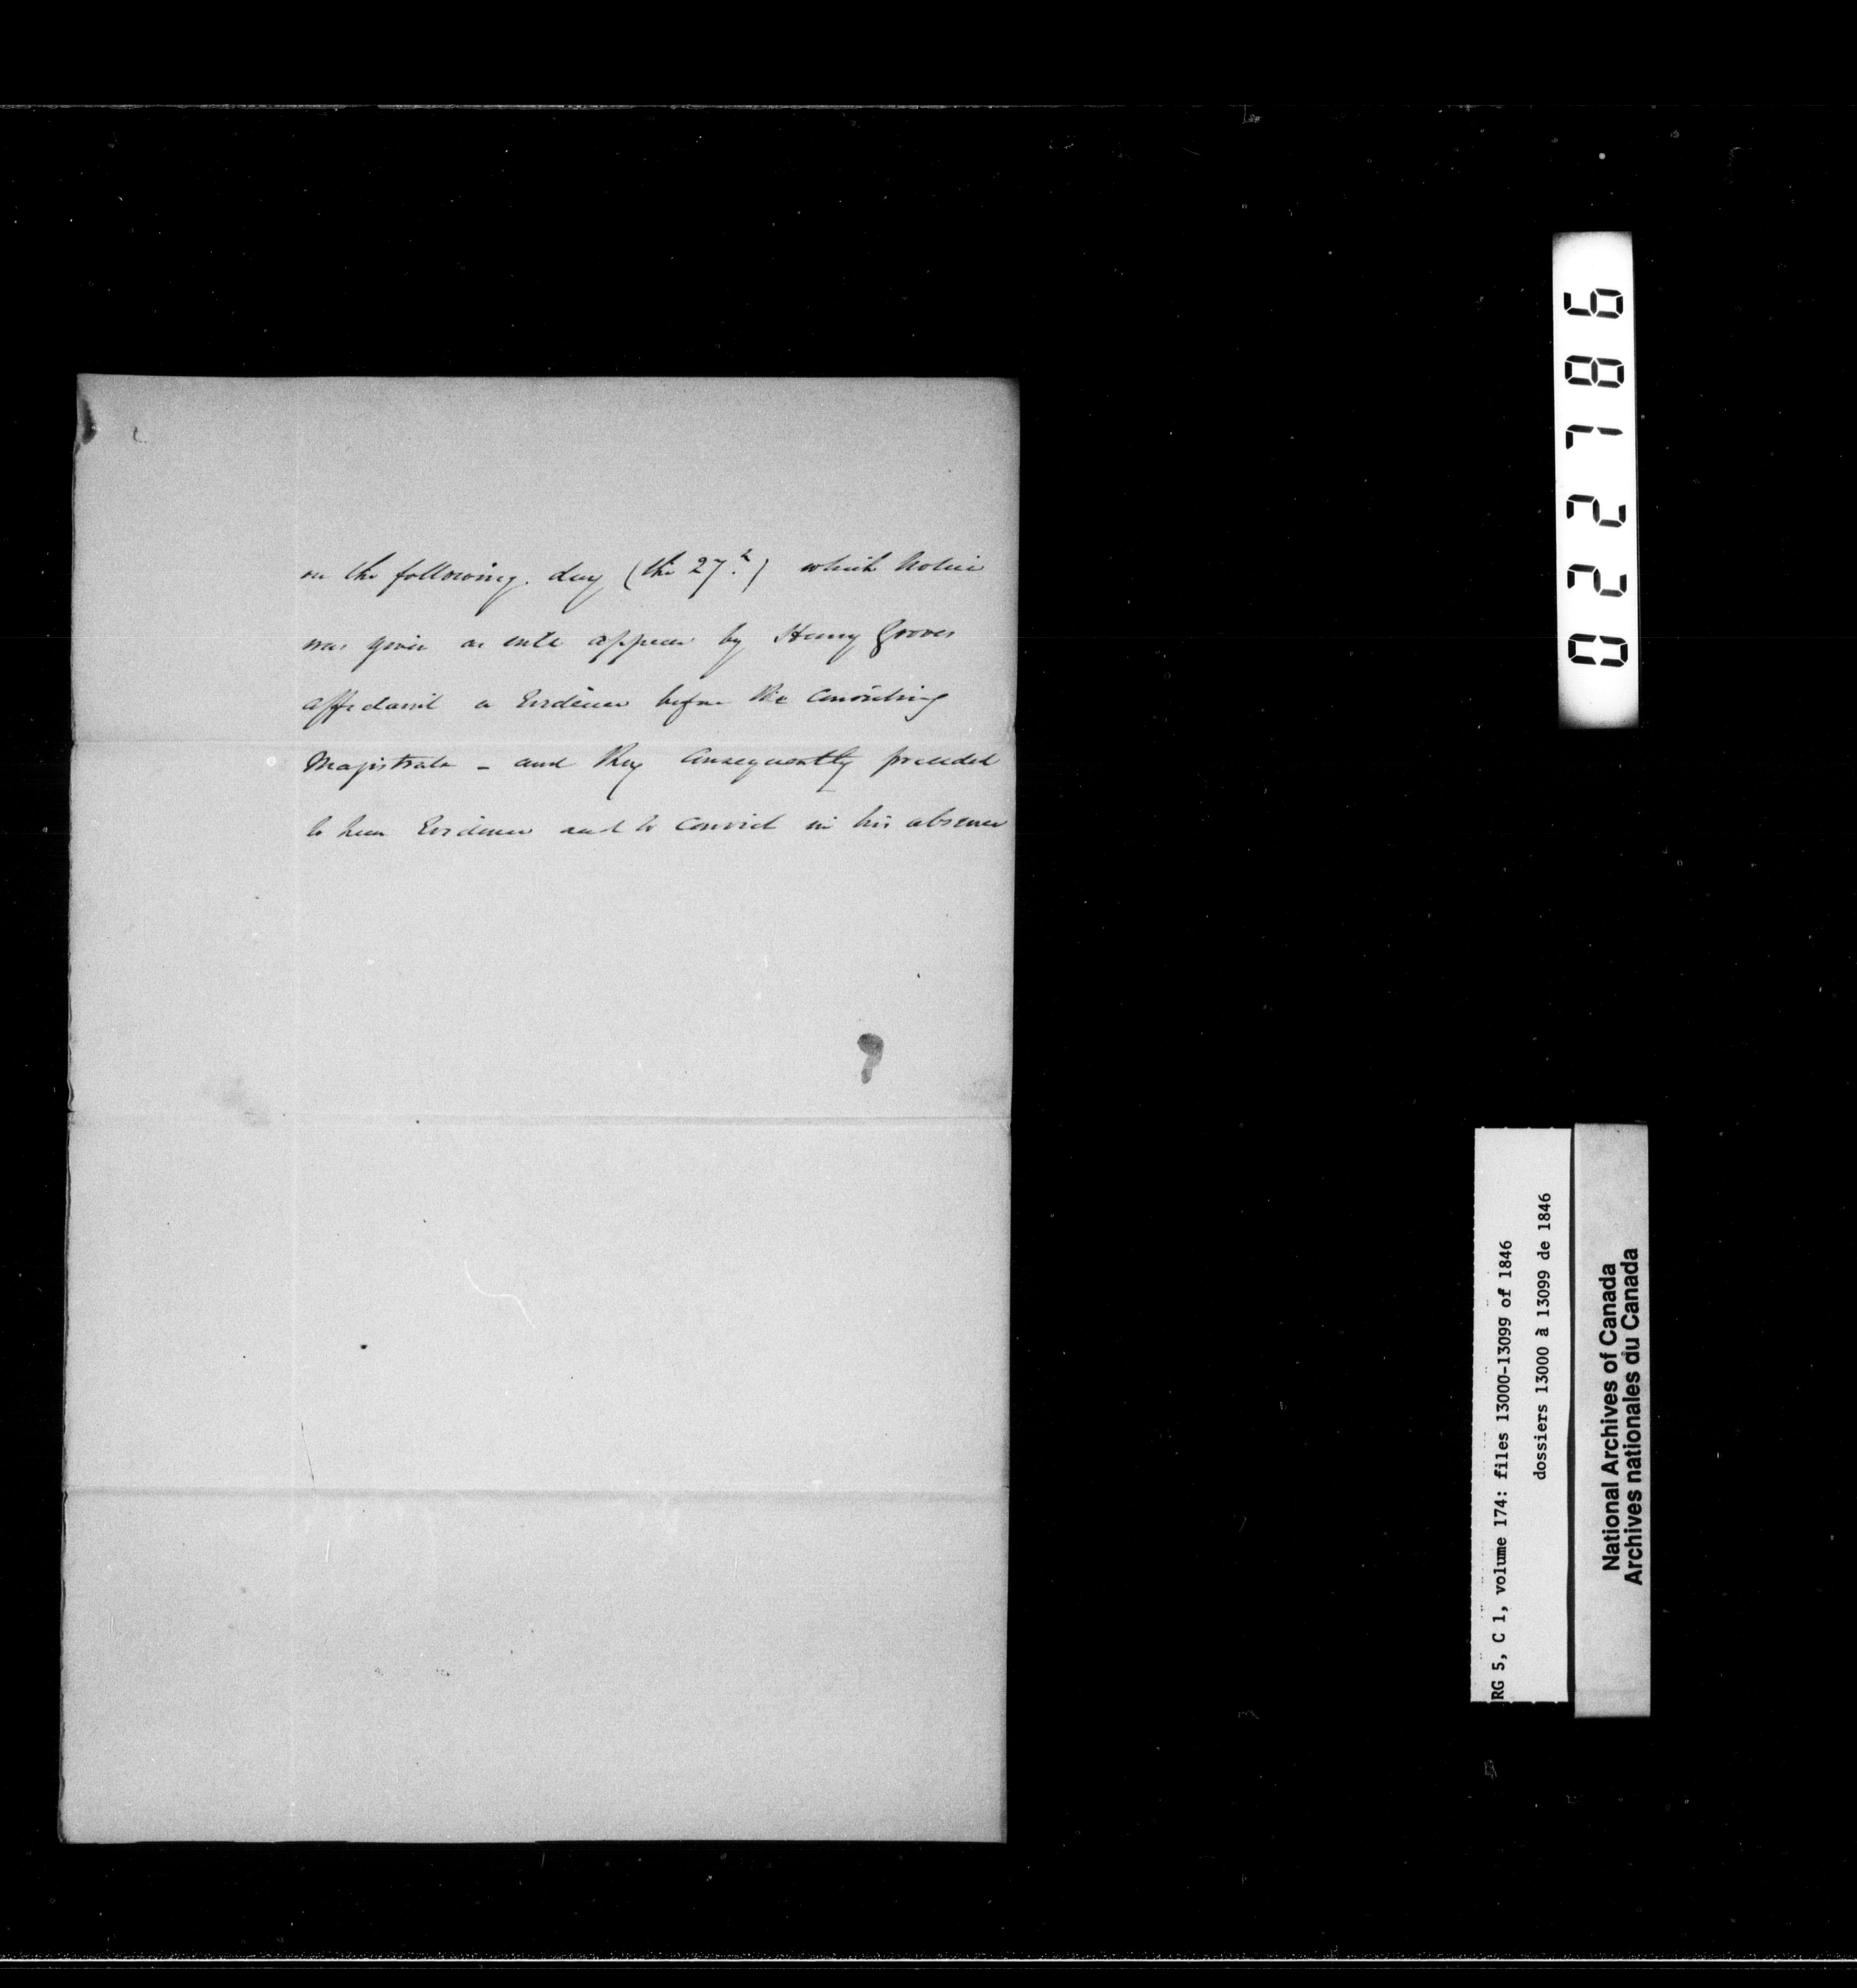 on the following day (the 27.th) which Notice
was given as will appear by Henry Groves
affidavit & Evidence before the Convicting
Magistrate - and they Consequently proceeded
to hear Evidence and to Convict in his absence
022786
RG 5, C 1, volume 174: files 13000-13099 of 1846
dossiers 13000 à 13099 de 1846
National Archives of Canada
Archives nationales du Canada